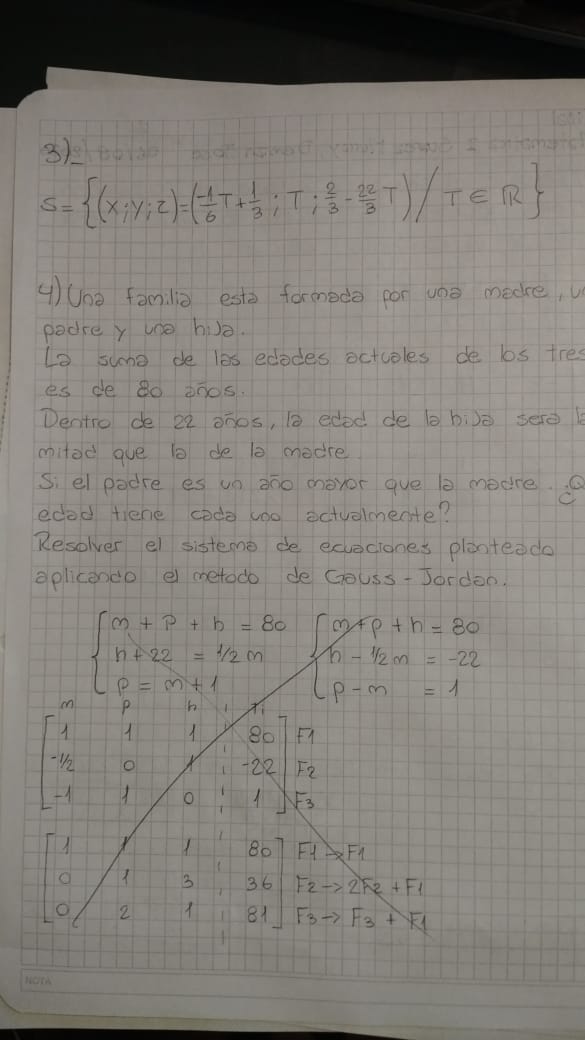 3)_
S = {(x;y;z)=(-1/6 T + 1/3 ; T ; 2/3 - 22/3 T) / T ∈ ℝ}
4) Una familia esta formada por una madre, u
padre y una hija.
La suma de las edades actuales de los tres
es de 80 años.
Dentro de 22 años, la edad de la hija sera l
mitad que la de la madre.
Si el padre es un año mayor que la madre. ¿Q
edad tiene cada uno actualmente?
Resolver el sistema de ecuaciones planteado
aplicando el metodo de Gauss-Jordan.
{ m + p + h = 80 { m + p + h = 80
h + 22 = 1/2 m h - 1/2 m = -22
p = m + 1 p - m = 1
m p h Ti
[ 1 1 1 ¦ 80 ] F1
-1/2 0 1 ¦ -22 F2
-1 1 0 ¦ 1 F3
[ 1 1 1 80 ] F1 -> F1
0 1 3 ¦ 36 F2 -> 2F2 + F1
0 2 1 ¦ 81 F3 -> F3 + F1
NOTA